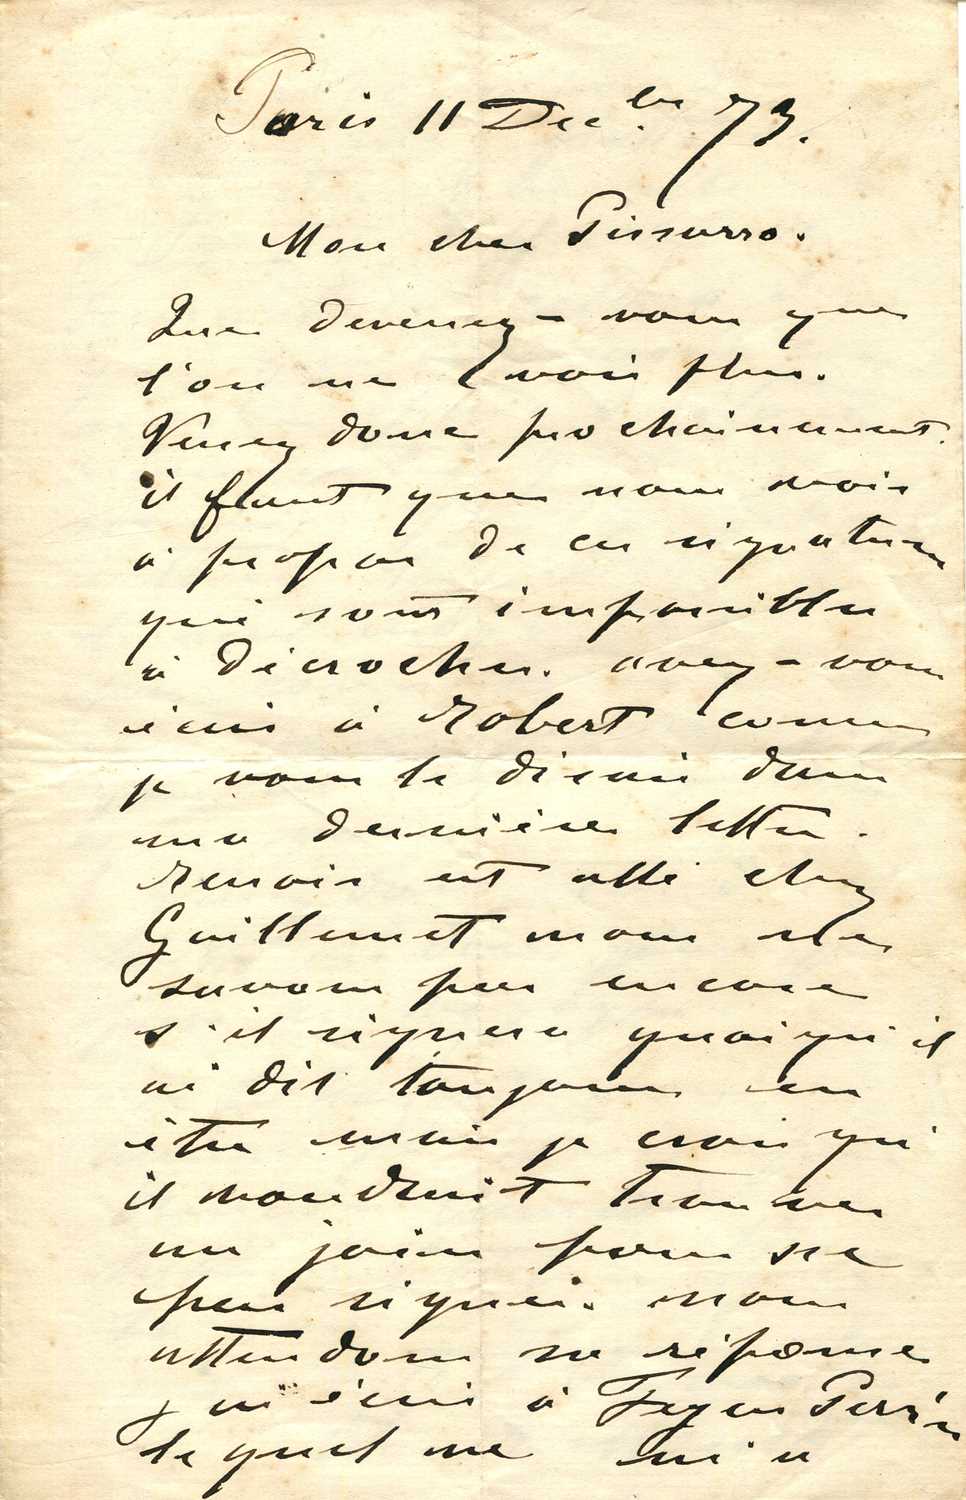 Paris 11 Decbre 73.
Mon cher Pissarro.
Que devenez-vous que
l'on ne voit plus.
Venez donc prochainement.
il faut que nous
à propos de ces signatures
qui sont impossibles
à décrocher. avez-vous
écris à Robert comme
je vous le disais dans
ma dernière lettre.
Renoir est allé chez
Guillemet nous ne
savons pas encore
s'il signera quoiqu'il
ai dit toujours en
être mais je crois qu'
il voudrait trouver
un joint pour ne
pas signer. nous
attendons sa réponse
j'ai écris à Feyen Perrin
lequel ne m'a